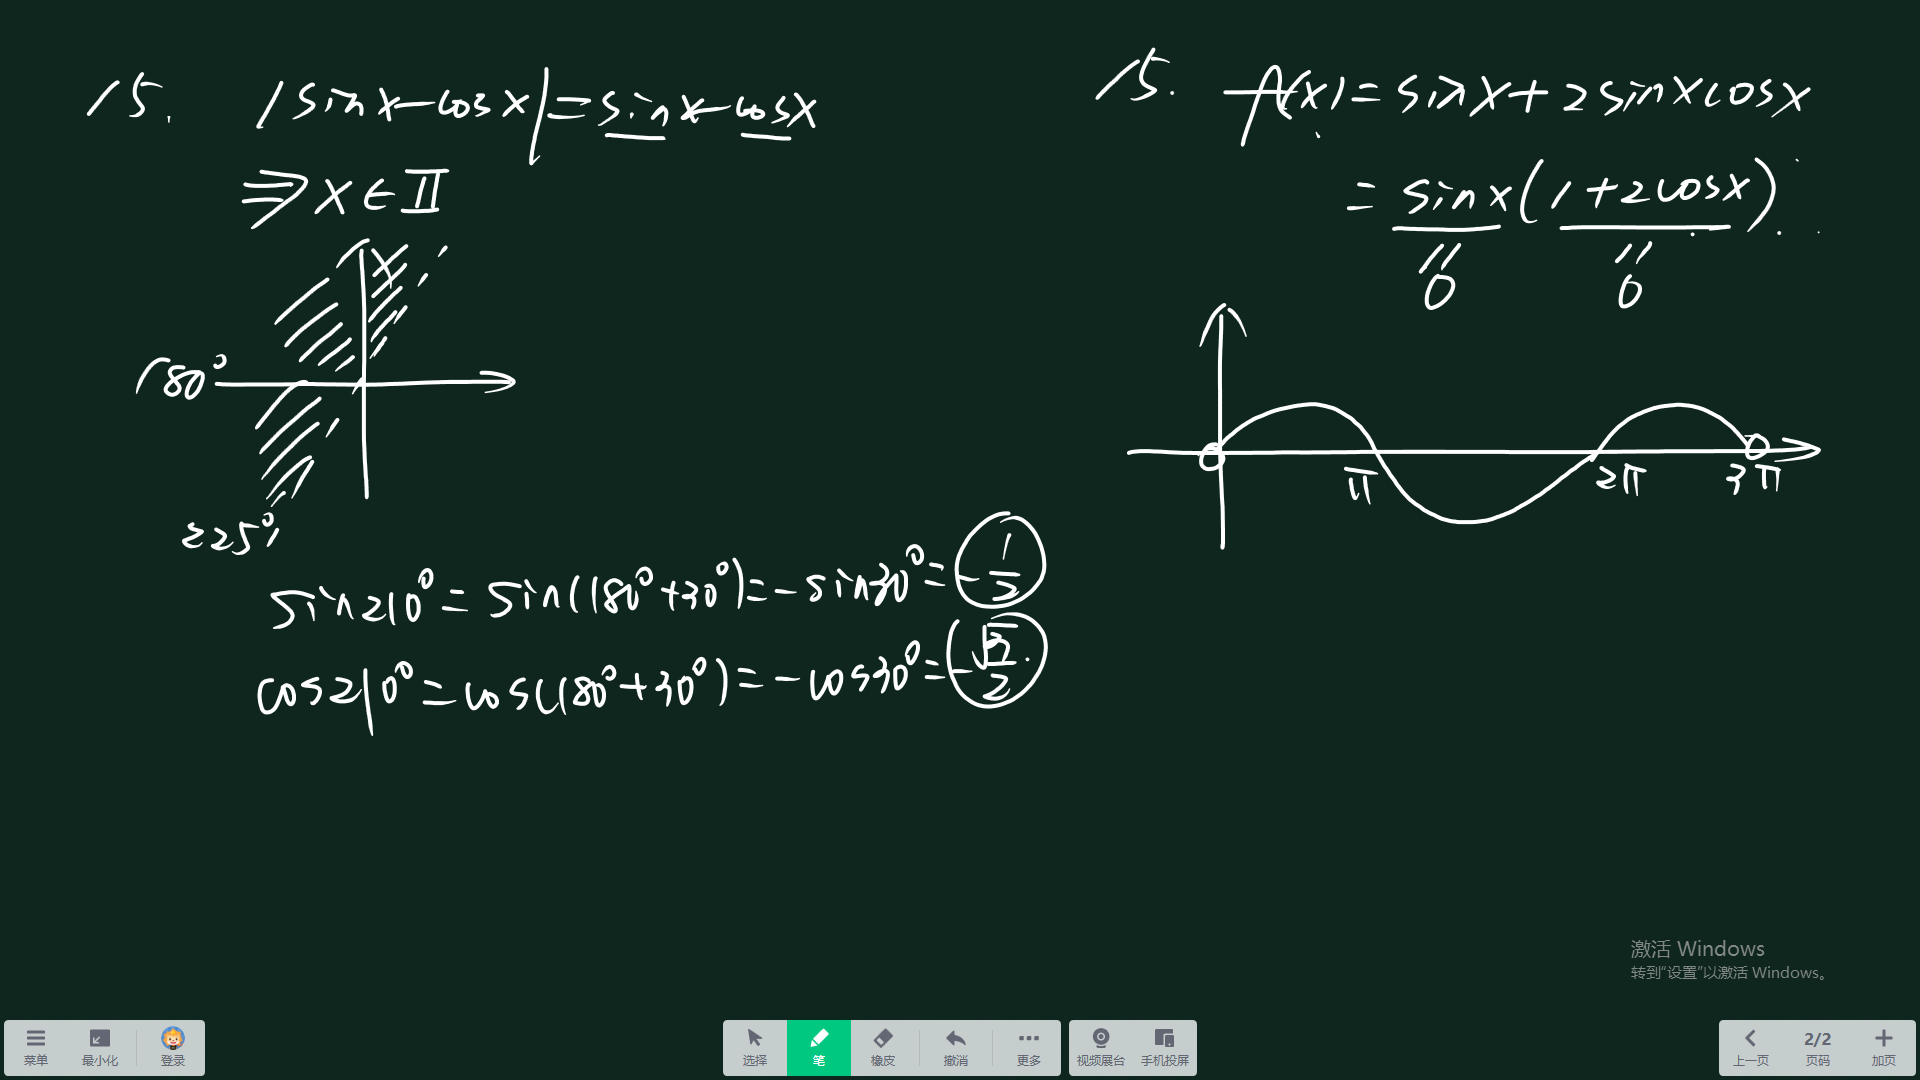 15. |sinx-cosx|=sinx-cosx
⇒x∈Ⅱ
180°
225°
sin210°=sin(180°+30°)=-sin30°=-1/2
cos210°=cos(180°+30°)=-cos30°=-√3/2
15. f(x)=sinx+2sinxcosx
=sinx(1+2cosx)
= =
0 0
π 2π 3π
激活 Windows
转到“设置”以激活 Windows。
菜单 最小化 登录 选择 笔 橡皮 撤消 更多 视频展台 手机投屏 上一页 2/2 页码 加页